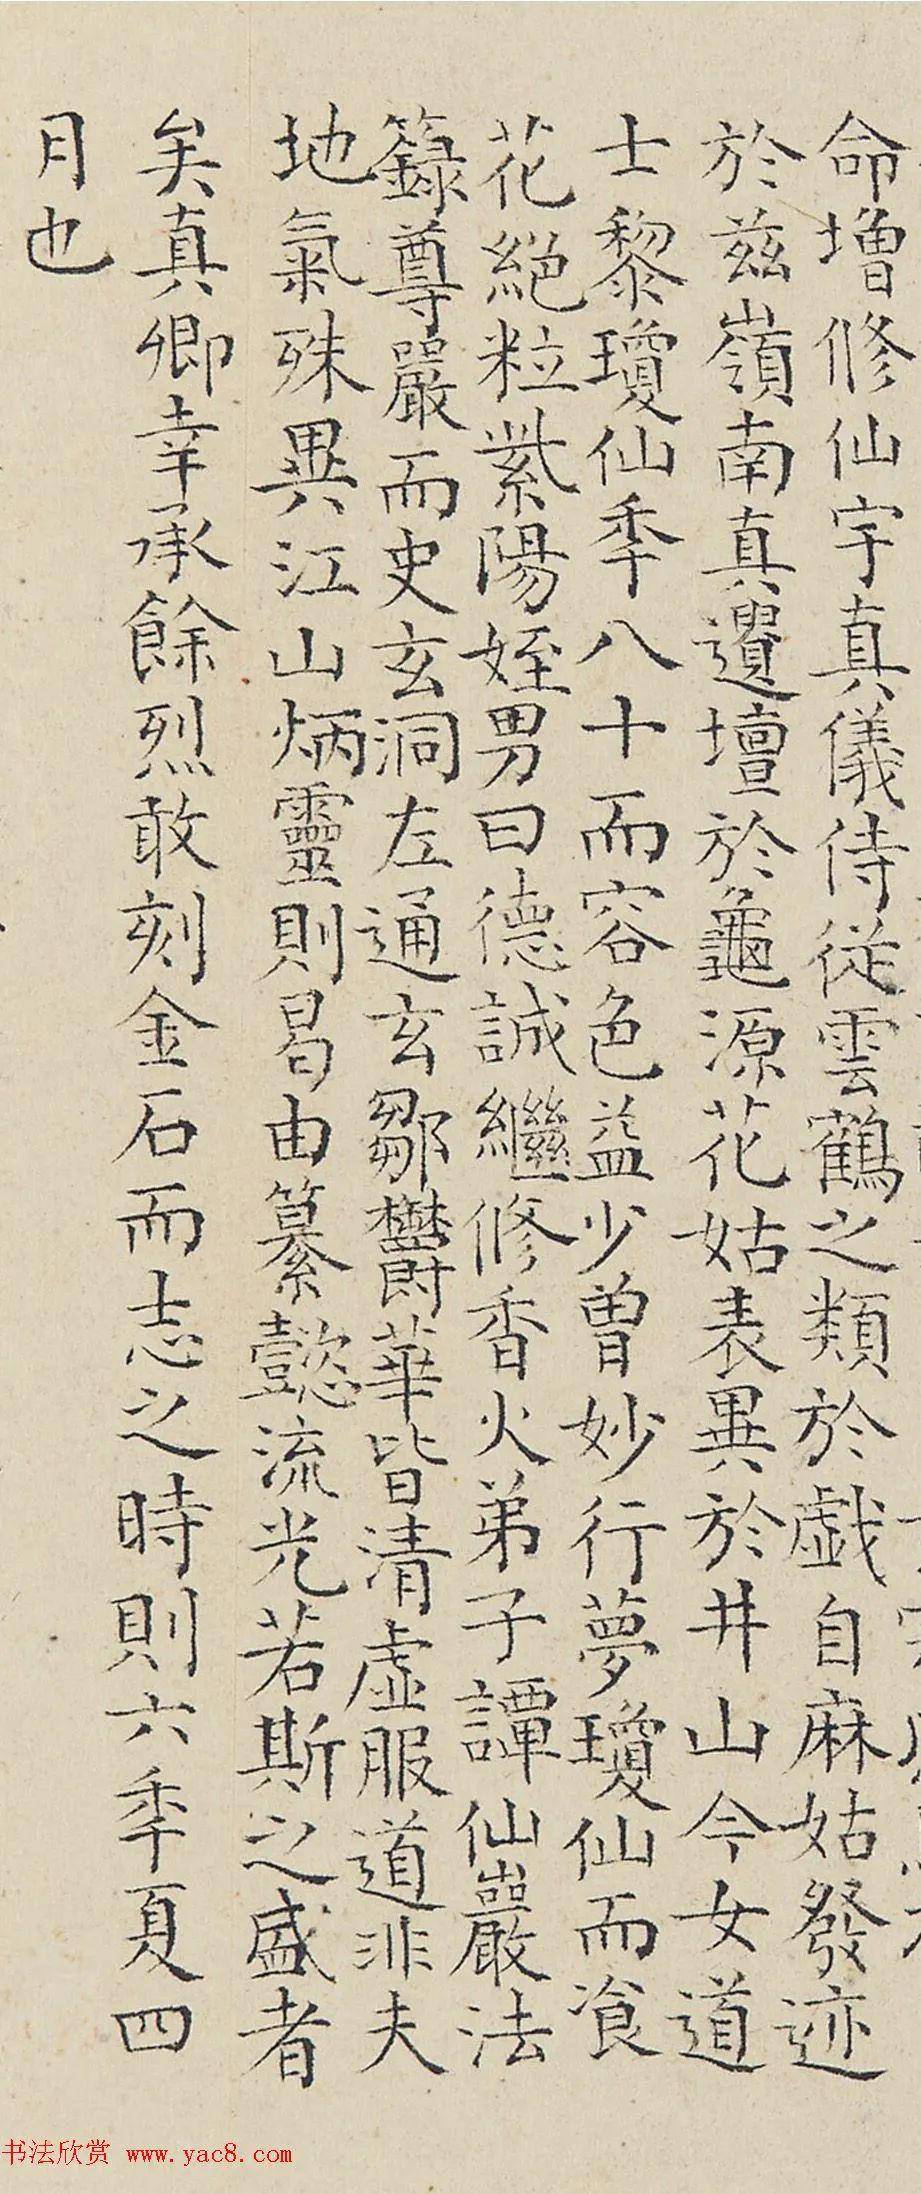 命増修仙宇真儀侍従雲鶴之類於戯自麻姑發迹
於兹嶺南真遺壇於龜源花姑表異於井山今女道
士黎瓊仙秊八十而容色益少曽妙行夢瓊仙而飡
花絕粒紫陽姪男曰德誠繼修香火弟子譚仙巖法
籙尊嚴而史玄洞左通玄鄒欝華皆清虛服道非夫
地氣殊異江山炳靈則曷由纂懿流光若斯之盛者
矣真卿幸承餘烈敢刻金石而志之時則六秊夏四
月也
书法欣赏 www.yac8.com